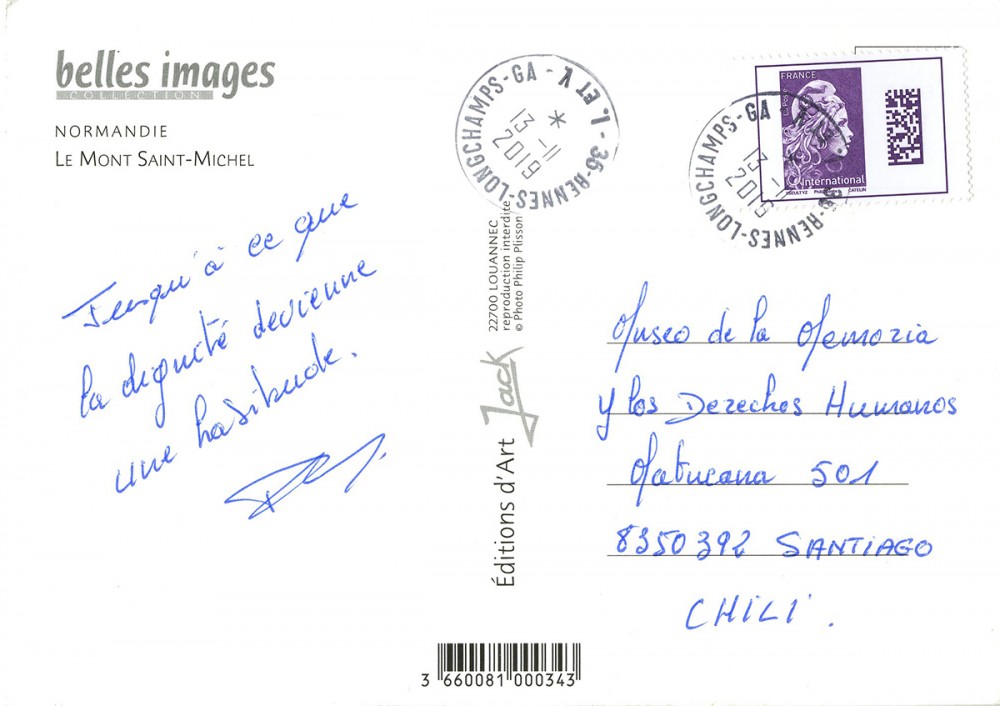 belles images
COLLECTION
NORMANDIE
LE MONT SAINT-MICHEL
Jusqu'à ce que
la dignité devienne
une habitude.
35-RENNES-LONGCHAMPS-GA - I. ET V.
13-11
2019
22700 LOUANNEC
reproduction interdite
© Photo Philip Plisson
Éditions d'Art Jack
FRANCE
International
35-RENNES-LONGCHAMPS-GA
13-11
2019
Museo de la Memoria
y los Derechos Humanos
Matucana 501
8350392 SANTIAGO
CHILI.
3 660081 000343